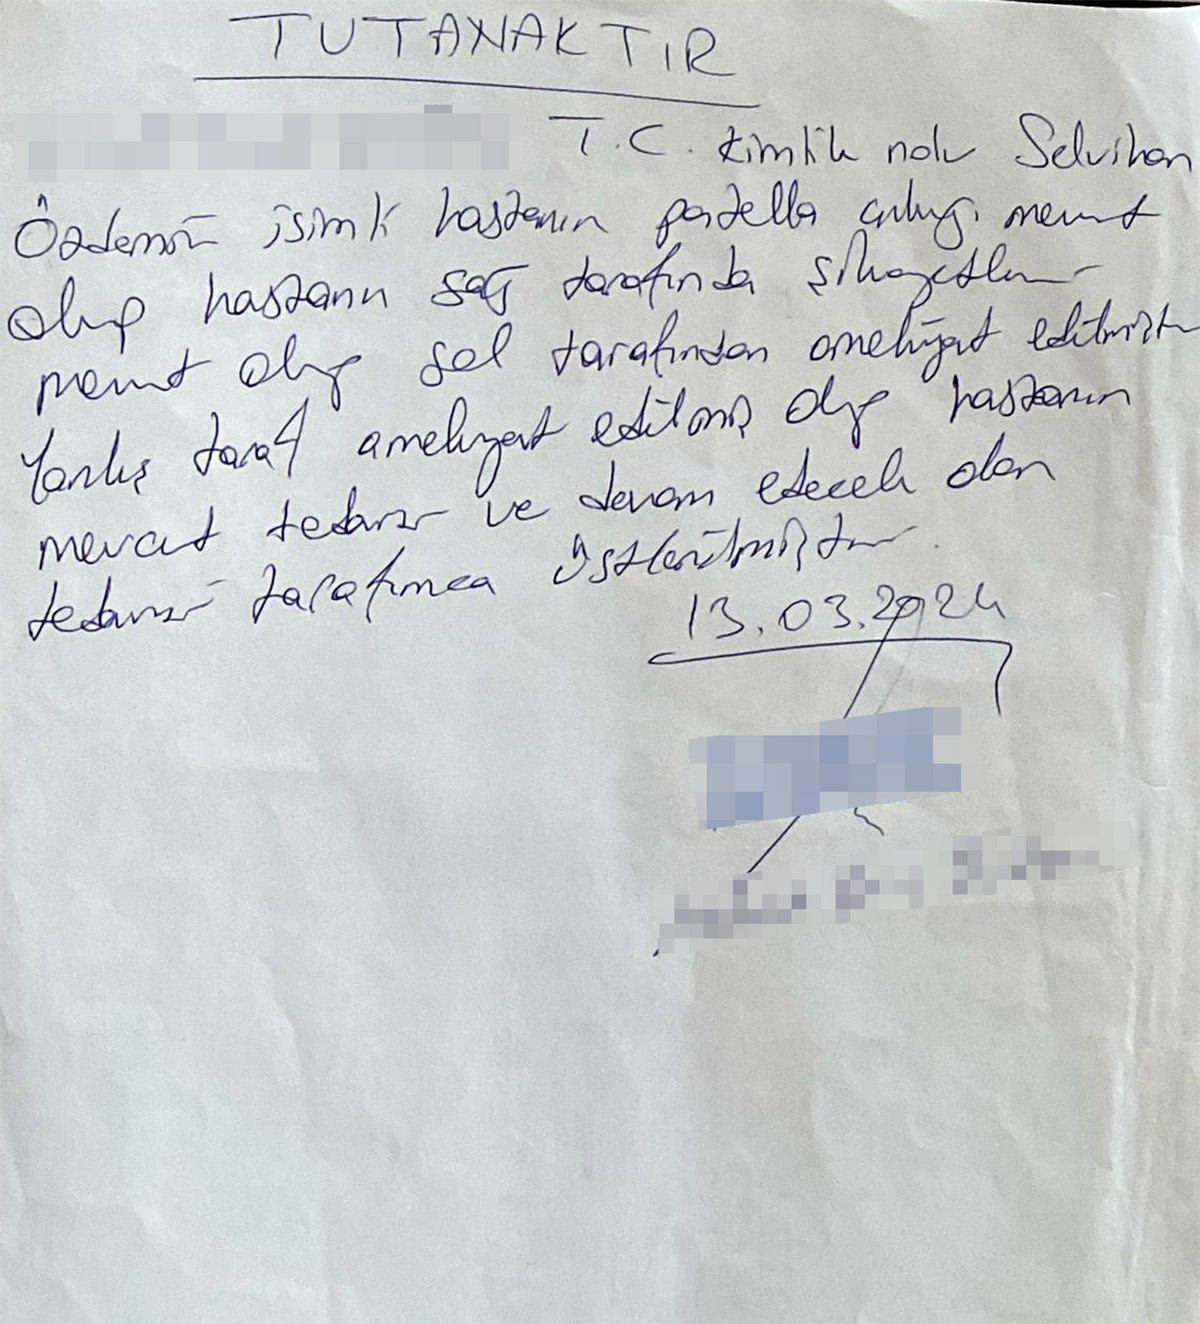 TUTANAKTIR
T.C. kimlik nolu Selvihan
Özdemir isimli hastanın patella çıkığı mevcut
olup hastanın sağ tarafında şikayetleri
mevcut olup sol tarafından ameliyat edilmiştir
Yanlış taraf ameliyat edilmiş olup hastanın
mevcut tedavisi ve devam edecek olan
tedavisi tarafımca üstlenilmiştir.
13.03.2024